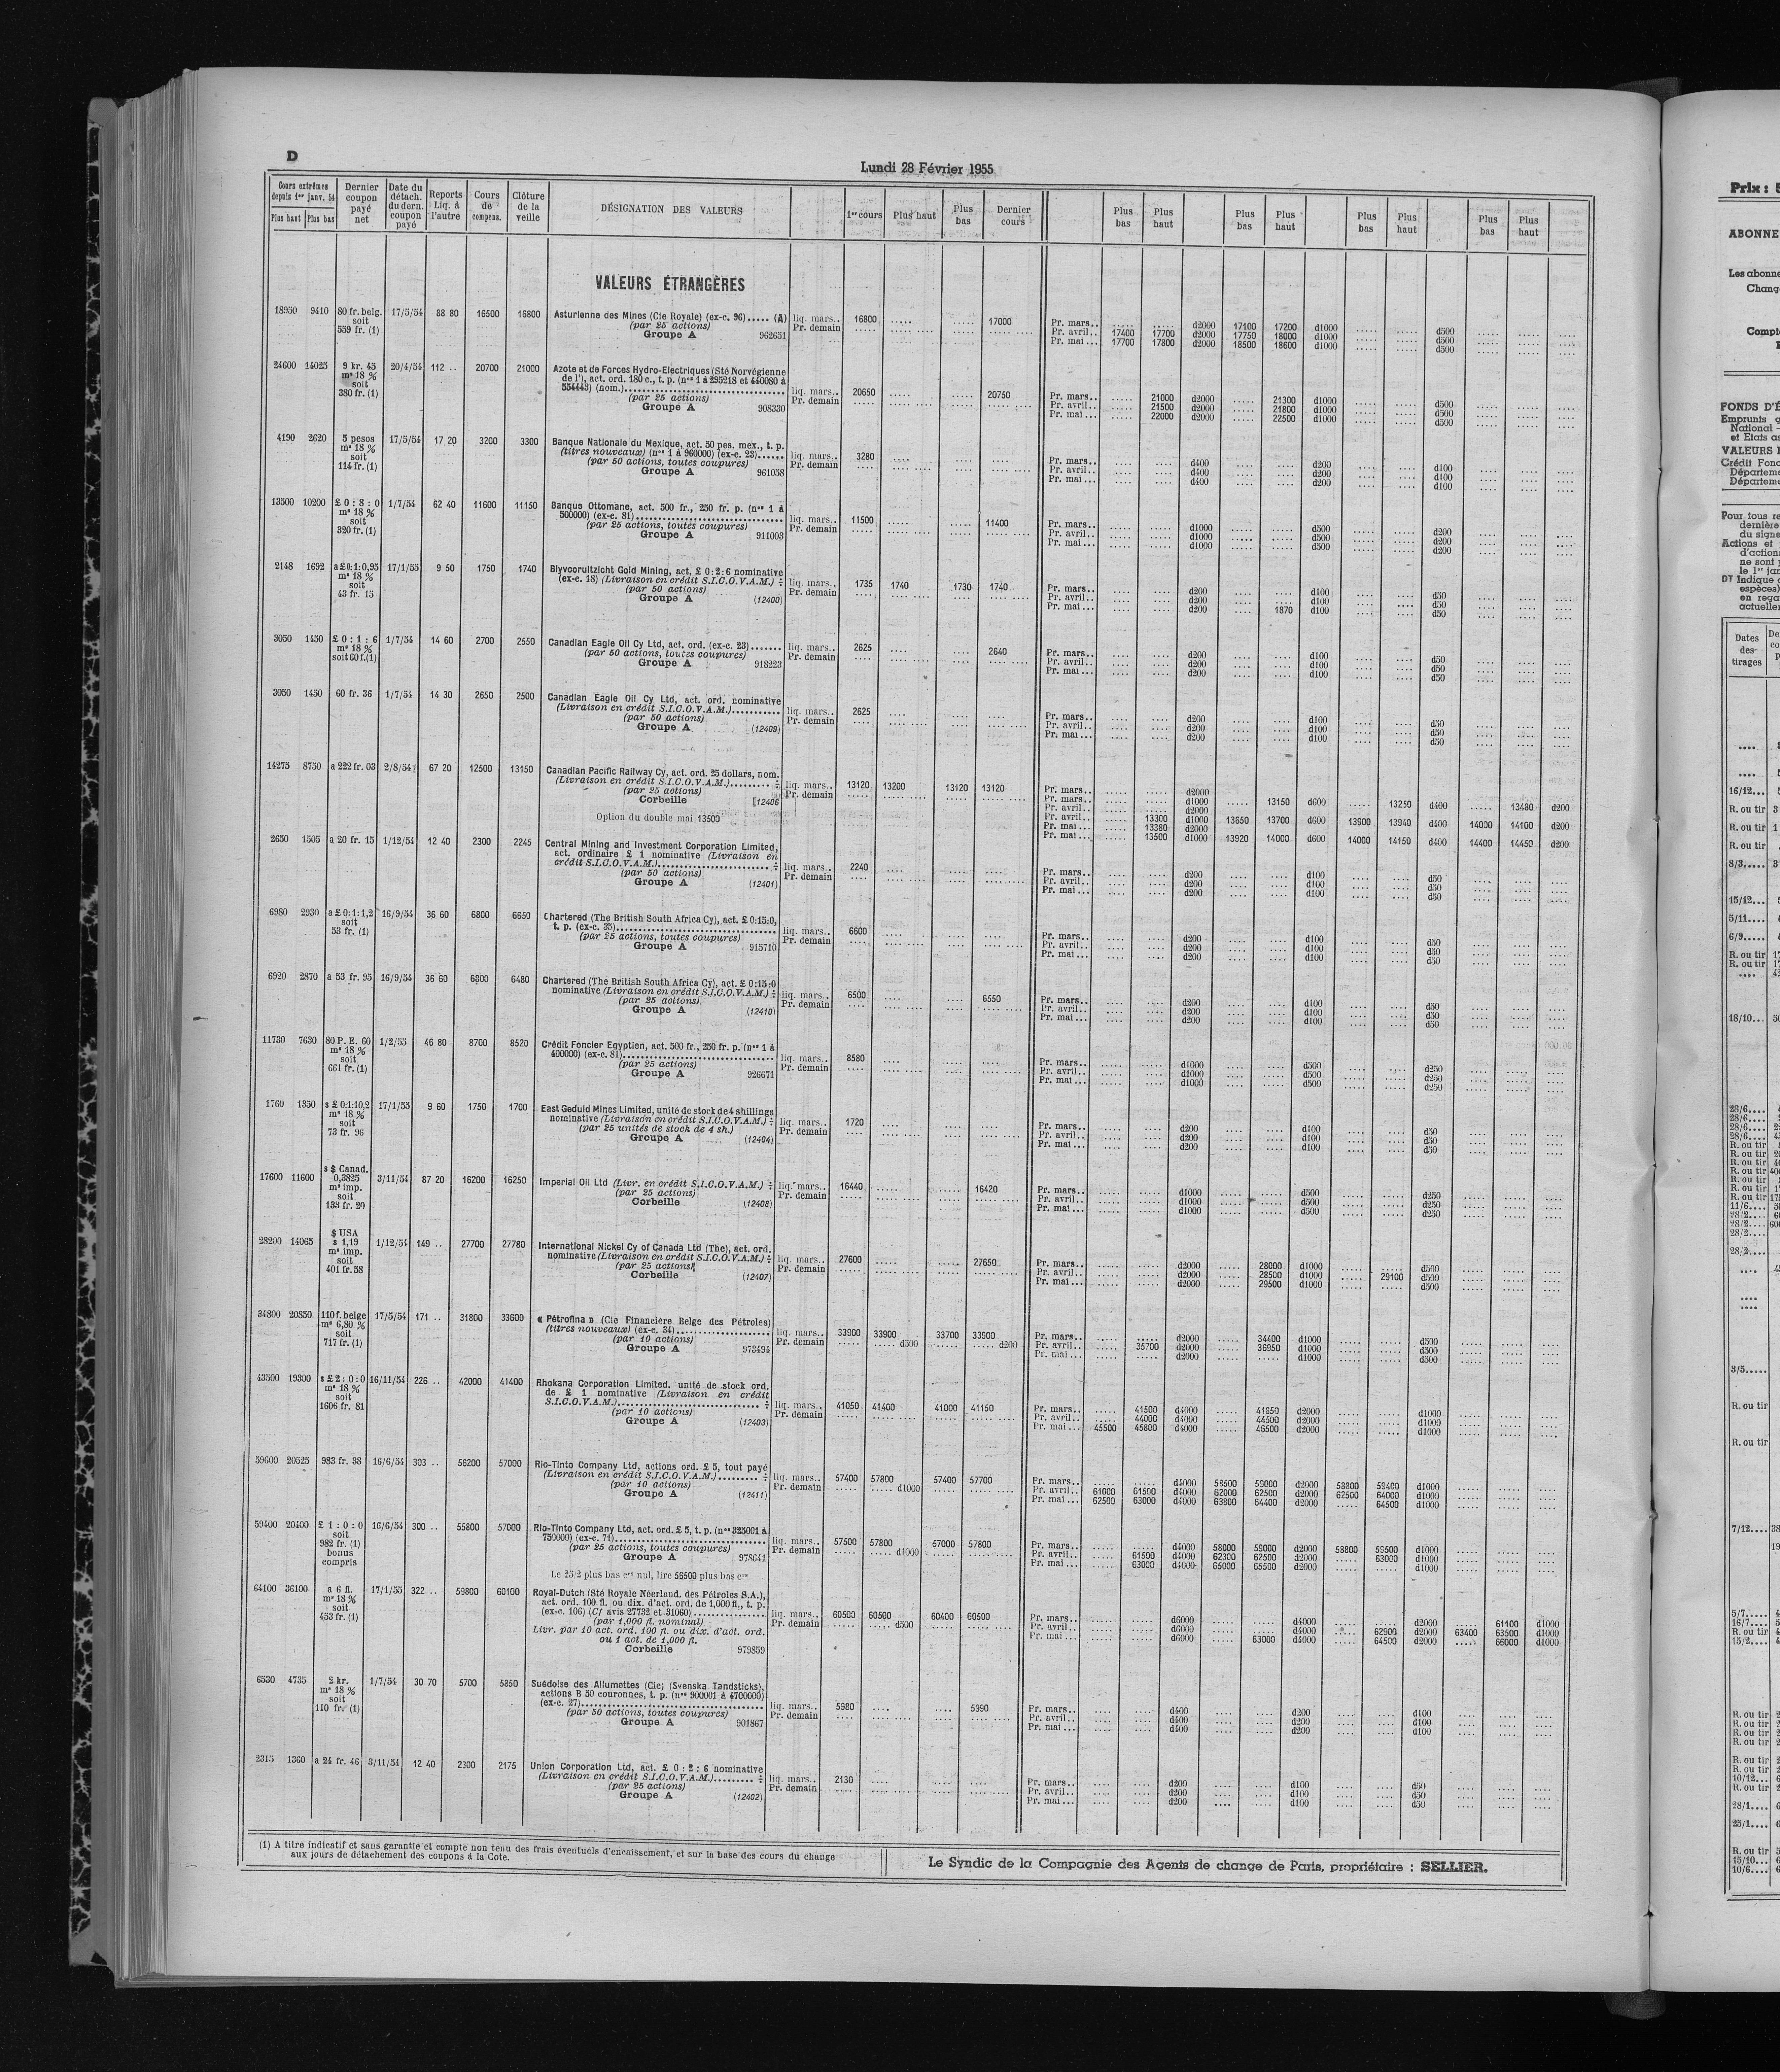 D
Lundi 28 Février 1955
Cours extrêmes depuis 1er janv. 54
Plus haut | Plus bas
Dernier coupon payé net
Date du détach. du dern. coupon payé
Reports Liq. à l'autre
Cours de compens.
Clôture de la veille
DÉSIGNATION DES VALEURS
1er cours
Plus haut
Plus bas
Dernier cours
Plus bas
Plus haut
Plus bas
Plus haut
Plus bas
Plus haut
Plus bas
Plus haut
VALEURS ÉTRANGÈRES
18950 9410 80 fr. belg. soit 559 fr. (1) 17/5/54 88 80 16500 16800
Asturienne des Mines (Cie Royale) (ex-c. 96)..... (A)
(par 25 actions)
Groupe A 962651
liq. mars.. 16800 ..... ..... 17000
Pr. demain
Pr. mars.. ..... ..... d2000 17100 17200 d1000 ..... ..... d500
Pr. avril.. 17400 17700 d2000 17750 18000 d1000 ..... ..... d500
Pr. mai... 17700 17800 d2000 18500 18600 d1000 ..... ..... d500
24600 14025 9 kr. 45 ms 18 % soit 380 fr. (1) 20/4/54 112 .. 20700 21000
Azote et de Forces Hydro-Electriques (Sté Norvégienne
de l'), act. ord. 180 c., t. p. (nos 1 à 295218 et 440080 à
554443) (nom.)
(par 25 actions)
Groupe A 908330
liq. mars.. 20650 ..... ..... 20750
Pr. demain
Pr. mars.. ..... 21000 d2000 ..... 21300 d1000 ..... ..... d500
Pr. avril.. ..... 21500 d2000 ..... 21800 d1000 ..... ..... d500
Pr. mai... ..... 22000 d2000 ..... 22500 d1000 ..... ..... d500
4190 2620 5 pesos ms 18 % soit 114 fr. (1) 17/5/54 17 20 3200 3300
Banque Nationale du Mexique, act. 50 pes. mex., t. p.
(titres nouveaux) (nos 1 à 960000) (ex-c. 23)......
(par 50 actions, toutes coupures)
Groupe A 961058
liq. mars.. 3280
Pr. demain
Pr. mars.. .... .... d400 .... .... d200 .... .... d100
Pr. avril.. .... .... d400 .... .... d200 .... .... d100
Pr. mai... .... .... d400 .... .... d200 .... .... d100
13500 10200 £ 0 : 8 : 0 ms 18 % soit 320 fr. (1) 1/7/54 62 40 11600 11150
Banque Ottomane, act. 500 fr., 250 fr. p. (nos 1 à
500000) (ex-c. 81)
(par 25 actions, toutes coupures)
Groupe A 911003
liq. mars.. 11500 ..... ..... 11400
Pr. demain
Pr. mars.. ..... ..... d1000 ..... ..... d500 ..... ..... d200
Pr. avril.. ..... ..... d1000 ..... ..... d500 ..... ..... d200
Pr. mai... ..... ..... d1000 ..... ..... d500 ..... ..... d200
2148 1692 a £ 0:1:0,95 ms 18 % soit 43 fr. 15 17/1/55 9 50 1750 1740
Blyvooruitzicht Gold Mining, act. £ 0:2:6 nominative
(ex-c. 18) (Livraison en crédit S.I.C.O.V.A.M.) ÷
(par 50 actions)
Groupe A (12400)
liq. mars.. 1735 1740 1730 1740
Pr. demain
Pr. mars.. .... .... d200 .... .... d100 .... .... d50
Pr. avril.. .... .... d200 .... .... d100 .... .... d50
Pr. mai... .... .... d200 .... 1870 d100 .... .... d50
3050 1450 £ 0 : 1 : 6 ms 18 % soit 60 f.(1) 1/7/54 14 60 2700 2550
Canadian Eagle Oil Cy Ltd, act. ord. (ex-c. 23).......
(par 50 actions, toutes coupures)
Groupe A 918223
liq. mars.. 2625 .... .... 2640
Pr. demain
Pr. mars.. .... .... d200 .... .... d100 .... .... d50
Pr. avril.. .... .... d200 .... .... d100 .... .... d50
Pr. mai... .... .... d200 .... .... d100 .... .... d50
3050 1450 60 fr. 36 1/7/54 14 30 2650 2500
Canadian Eagle Oil Cy Ltd, act. ord. nominative
(Livraison en crédit S.I.C.O.V.A.M.)...........
(par 50 actions)
Groupe A (12409)
liq. mars.. 2625
Pr. demain
Pr. mars.. .... .... d200 .... .... d100 .... .... d50
Pr. avril.. .... .... d200 .... .... d100 .... .... d50
Pr. mai... .... .... d200 .... .... d100 .... .... d50
14275 8750 a 222 fr. 03 2/8/54 67 20 12500 13150
Canadian Pacific Railway Cy, act. ord. 25 dollars, nom.
(Livraison en crédit S.I.C.O.V.A.M.)......... ÷
(par 25 actions)
Corbeille (12406
Option du double mai 13500
liq. mars.. 13120 13200 13120 13120
Pr. demain
Pr. mars.. ..... ..... d2000
Pr. mars.. ..... ..... d1000 ..... 13150 d600 ..... 13250 d400 ..... 13480 d200
Pr. avril.. ..... ..... d2000
Pr. avril.. ..... 13300 d1000 13650 13700 d600 13900 13940 d400 14000 14100 d200
Pr. mai... ..... 13380 d2000
Pr. mai... ..... 13500 d1000 13920 14000 d600 14000 14150 d400 14400 14450 d200
2650 1505 a 20 fr. 15 1/12/54 12 40 2300 2245
Central Mining and Investment Corporation Limited,
act. ordinaire £ 1 nominative (Livraison en
crédit S.I.C.O.V.A.M.) ÷
(par 50 actions)
Groupe A (12401)
liq. mars.. 2240
Pr. demain
Pr. mars.. .... .... d200 .... .... d100 .... .... d50
Pr. avril.. .... .... d200 .... .... d100 .... .... d50
Pr. mai... .... .... d200 .... .... d100 .... .... d50
6980 2930 a £ 0:1:1,2 soit 53 fr. (1) 16/9/54 36 60 6800 6650
Chartered (The British South Africa Cy), act. £ 0:15:0,
t. p. (ex-c. 35)
(par 25 actions, toutes coupures)
Groupe A 915710
liq. mars.. 6600
Pr. demain
Pr. mars.. .... .... d200 .... .... d100 .... .... d50
Pr. avril.. .... .... d200 .... .... d100 .... .... d50
Pr. mai... .... .... d200 .... .... d100 .... .... d50
6920 2870 a 53 fr. 95 16/9/54 36 60 6800 6480
Chartered (The British South Africa Cy), act. £ 0:15:0
nominative (Livraison en crédit S.I.C.O.V.A.M.) ÷
(par 25 actions)
Groupe A (12410)
liq. mars.. 6500 .... .... 6550
Pr. demain
Pr. mars.. .... .... d200 .... .... d100 .... .... d50
Pr. avril.. .... .... d200 .... .... d100 .... .... d50
Pr. mai... .... .... d200 .... .... d100 .... .... d50
11730 7630 80 P. E. 60 ms 18 % soit 661 fr. (1) 1/2/55 46 80 8700 8520
Crédit Foncier Egyptien, act. 500 fr., 250 fr. p. (nos 1 à
400000) (ex-c. 81)
(par 25 actions)
Groupe A 926671
liq. mars.. 8580
Pr. demain
Pr. mars.. .... .... d1000 .... .... d500 .... .... d250
Pr. avril.. .... .... d1000 .... .... d500 .... .... d250
Pr. mai... .... .... d1000 .... .... d500 .... .... d250
1760 1350 s £ 0:1:10,2 ms 18 % soit 73 fr. 96 17/1/55 9 60 1750 1700
East Geduld Mines Limited, unité de stock de 4 shillings
nominative (Livraison en crédit S.I.C.O.V.A.M.) ÷
(par 25 unités de stock de 4 sh.)
Groupe A (12404)
liq. mars.. 1720
Pr. demain
Pr. mars.. .... .... d200 .... .... d100 .... .... d50
Pr. avril.. .... .... d200 .... .... d100 .... .... d50
Pr. mai... .... .... d200 .... .... d100 .... .... d50
17600 11600 s $ Canad. 0,3825 ms imp. soit 133 fr. 20 3/11/54 87 20 16200 16250
Imperial Oil Ltd (Livr. en crédit S.I.C.O.V.A.M.) ÷
(par 25 actions)
Corbeille (12408)
liq. mars.. 16440 ..... ..... 16420
Pr. demain
Pr. mars.. ..... ..... d1000 ..... ..... d500 ..... ..... d250
Pr. avril.. ..... ..... d1000 ..... ..... d500 ..... ..... d250
Pr. mai... ..... ..... d1000 ..... ..... d500 ..... ..... d250
28200 14065 $ USA s 1,19 ms imp. soit 401 fr. 58 1/12/54 149 .. 27700 27780
International Nickel Cy of Canada Ltd (The), act. ord.
nominative (Livraison en crédit S.I.C.O.V.A.M.) ÷
(par 25 actions)
Corbeille (12407)
liq. mars.. 27600 ..... ..... 27650
Pr. demain
Pr. mars.. ..... ..... d2000 ..... 28000 d1000 ..... ..... d500
Pr. avril.. ..... ..... d2000 ..... 28500 d1000 ..... 29100 d500
Pr. mai... ..... ..... d2000 ..... 29500 d1000 ..... ..... d500
34800 20850 110 f. belge ms 6,80 % soit 717 fr. (1) 17/5/54 171 .. 31800 33600
« Pétrofina » (Cie Financière Belge des Pétroles)
(titres nouveaux) (ex-c. 34)
(par 10 actions)
Groupe A 973494
liq. mars.. 33900 33900 33700 33900
Pr. demain ..... ..... d500 ..... ..... d200
Pr. mars.. ..... ..... d2000 ..... 34400 d1000 ..... ..... d500
Pr. avril.. ..... 35700 d2000 ..... 36950 d1000 ..... ..... d500
Pr. mai... ..... ..... d2000 ..... ..... d1000 ..... ..... d500
43500 19300 s £ 2 : 0 : 0 ms 18 % soit 1606 fr. 81 16/11/54 226 .. 42000 41400
Rhokana Corporation Limited. unité de stock ord.
de £ 1 nominative (Livraison en crédit
S.I.C.O.V.A.M.) ÷
(par 10 actions)
Groupe A (12403)
liq. mars.. 41050 41400 41000 41150
Pr. demain
Pr. mars.. ..... 41500 d4000 ..... 41850 d2000 ..... ..... d1000
Pr. avril.. ..... 44000 d4000 ..... 44500 d2000 ..... ..... d1000
Pr. mai... 45500 45800 d4000 ..... 46500 d2000 ..... ..... d1000
59600 20525 983 fr. 38 16/6/54 303 .. 56200 57000
Rio-Tinto Company Ltd, actions ord. £ 5, tout payé
(Livraison en crédit S.I.C.O.V.A.M.)......... ÷
(par 10 actions)
Groupe A (12411)
liq. mars.. 57400 57800 57400 57700
Pr. demain ..... ..... d1000
Pr. mars.. ..... ..... d4000 58500 59000 d2000 58800 59400 d1000
Pr. avril.. 61000 61500 d4000 62000 62500 d2000 62500 64000 d1000
Pr. mai... 62500 63000 d4000 63800 64400 d2000 ..... 64500 d1000
59400 20400 £ 1 : 0 : 0 soit 982 fr. (1) bonus compris 16/6/54 300 .. 55800 57000
Rio-Tinto Company Ltd, act. ord. £ 5, t. p. (nos 325001 à
750000) (ex-c. 71)
(par 25 actions, toutes coupures)
Groupe A 978641
Le 25/2 plus bas crs nul, lire 56500 plus bas crs
liq. mars.. 57500 57800 57000 57800
Pr. demain ..... ..... d1000
Pr. mars.. ..... ..... d4000 58000 59000 d2000 58800 59500 d1000
Pr. avril.. ..... 61500 d4000 62300 62500 d2000 ..... 63000 d1000
Pr. mai... ..... 63000 d4000 65000 65500 d2000 ..... ..... d1000
64100 36100 a 6 fl. ms 18 % soit 453 fr. (1) 17/1/55 322 .. 59800 60100
Royal-Dutch (Sté Royale Néerland. des Pétroles S.A.),
act. ord. 100 fl. ou dix. d'act. ord. de 1,000 fl., t. p.
(ex-c. 106) (Cf avis 27732 et 31060)
(par 1,000 fl. nominal)
Livr. par 10 act. ord. 100 fl. ou dix. d'act. ord.
ou 1 act. de 1,000 fl.
Corbeille 979859
liq. mars.. 60500 60500 60400 60500
Pr. demain ..... ..... d500
Pr. mars.. ..... ..... d6000 ..... ..... d4000 ..... ..... d2000 ..... 61100 d1000
Pr. avril.. ..... ..... d6000 ..... ..... d4000 ..... 62900 d2000 63400 63500 d1000
Pr. mai... ..... ..... d6000 ..... 63000 d4000 ..... 64500 d2000 ..... 66000 d1000
6530 4735 2 kr. ms 18 % soit 110 fr. (1) 1/7/54 30 70 5700 5850
Suédoise des Allumettes (Cie) (Svenska Tandsticks),
actions B 50 couronnes, t. p. (nos 900001 à 4700000)
(ex-c. 27)
(par 50 actions, toutes coupures)
Groupe A 901867
liq. mars.. 5980 .... .... 5990
Pr. demain
Pr. mars.. .... .... d400 .... .... d200 .... .... d100
Pr. avril.. .... .... d400 .... .... d200 .... .... d100
Pr. mai... .... .... d400 .... .... d200 .... .... d100
2315 1360 a 24 fr. 46 3/11/54 12 40 2300 2175
Union Corporation Ltd, act. £ 0 : 2 : 6 nominative
(Livraison en crédit S.I.C.O.V.A.M.)......... ÷
(par 25 actions)
Groupe A (12402)
liq. mars.. 2130
Pr. demain
Pr. mars.. .... .... d200 .... .... d100 .... .... d50
Pr. avril.. .... .... d200 .... .... d100 .... .... d50
Pr. mai... .... .... d200 .... .... d100 .... .... d50
(1) A titre indicatif et sans garantie et compte non tenu des frais éventuels d'encaissement, et sur la base des cours du change
aux jours de détachement des coupons à la Cote.
Le Syndic de la Compagnie des Agents de change de Paris, propriétaire : SELLIER.
Prix :
ABONNE
Les abonne
Chang
Compt
FONDS D'É
Emprunts
National
et Etats
VALEURS
Crédit Fonc
Départeme
Départeme
Pour tous re
dernière
du signe
Actions et
d'action
ne sont
le 1er jan
DT Indique
espèces)
en rega
actuelle
Dates des tirages
16/12...
R. ou tir
R. ou tir
R. ou tir
8/3.....
15/12...
5/11....
6/9.....
R. ou tir
R. ou tir
18/10...
28/6....
28/6....
28/6....
28/6....
R. ou tir
R. ou tir
R. ou tir
R. ou tir
R. ou tir
R. ou tir
R. ou tir
11/6....
28/2....
28/2....
28/2....
28/2....
3/5.....
R. ou tir
R. ou tir
7/12....
5/7.....
16/7....
R. ou tir
15/2....
R. ou tir
R. ou tir
R. ou tir
R. ou tir
R. ou tir
R. ou tir
10/12...
R. ou tir
28/1....
25/1....
R. ou tir
15/10...
10/6....